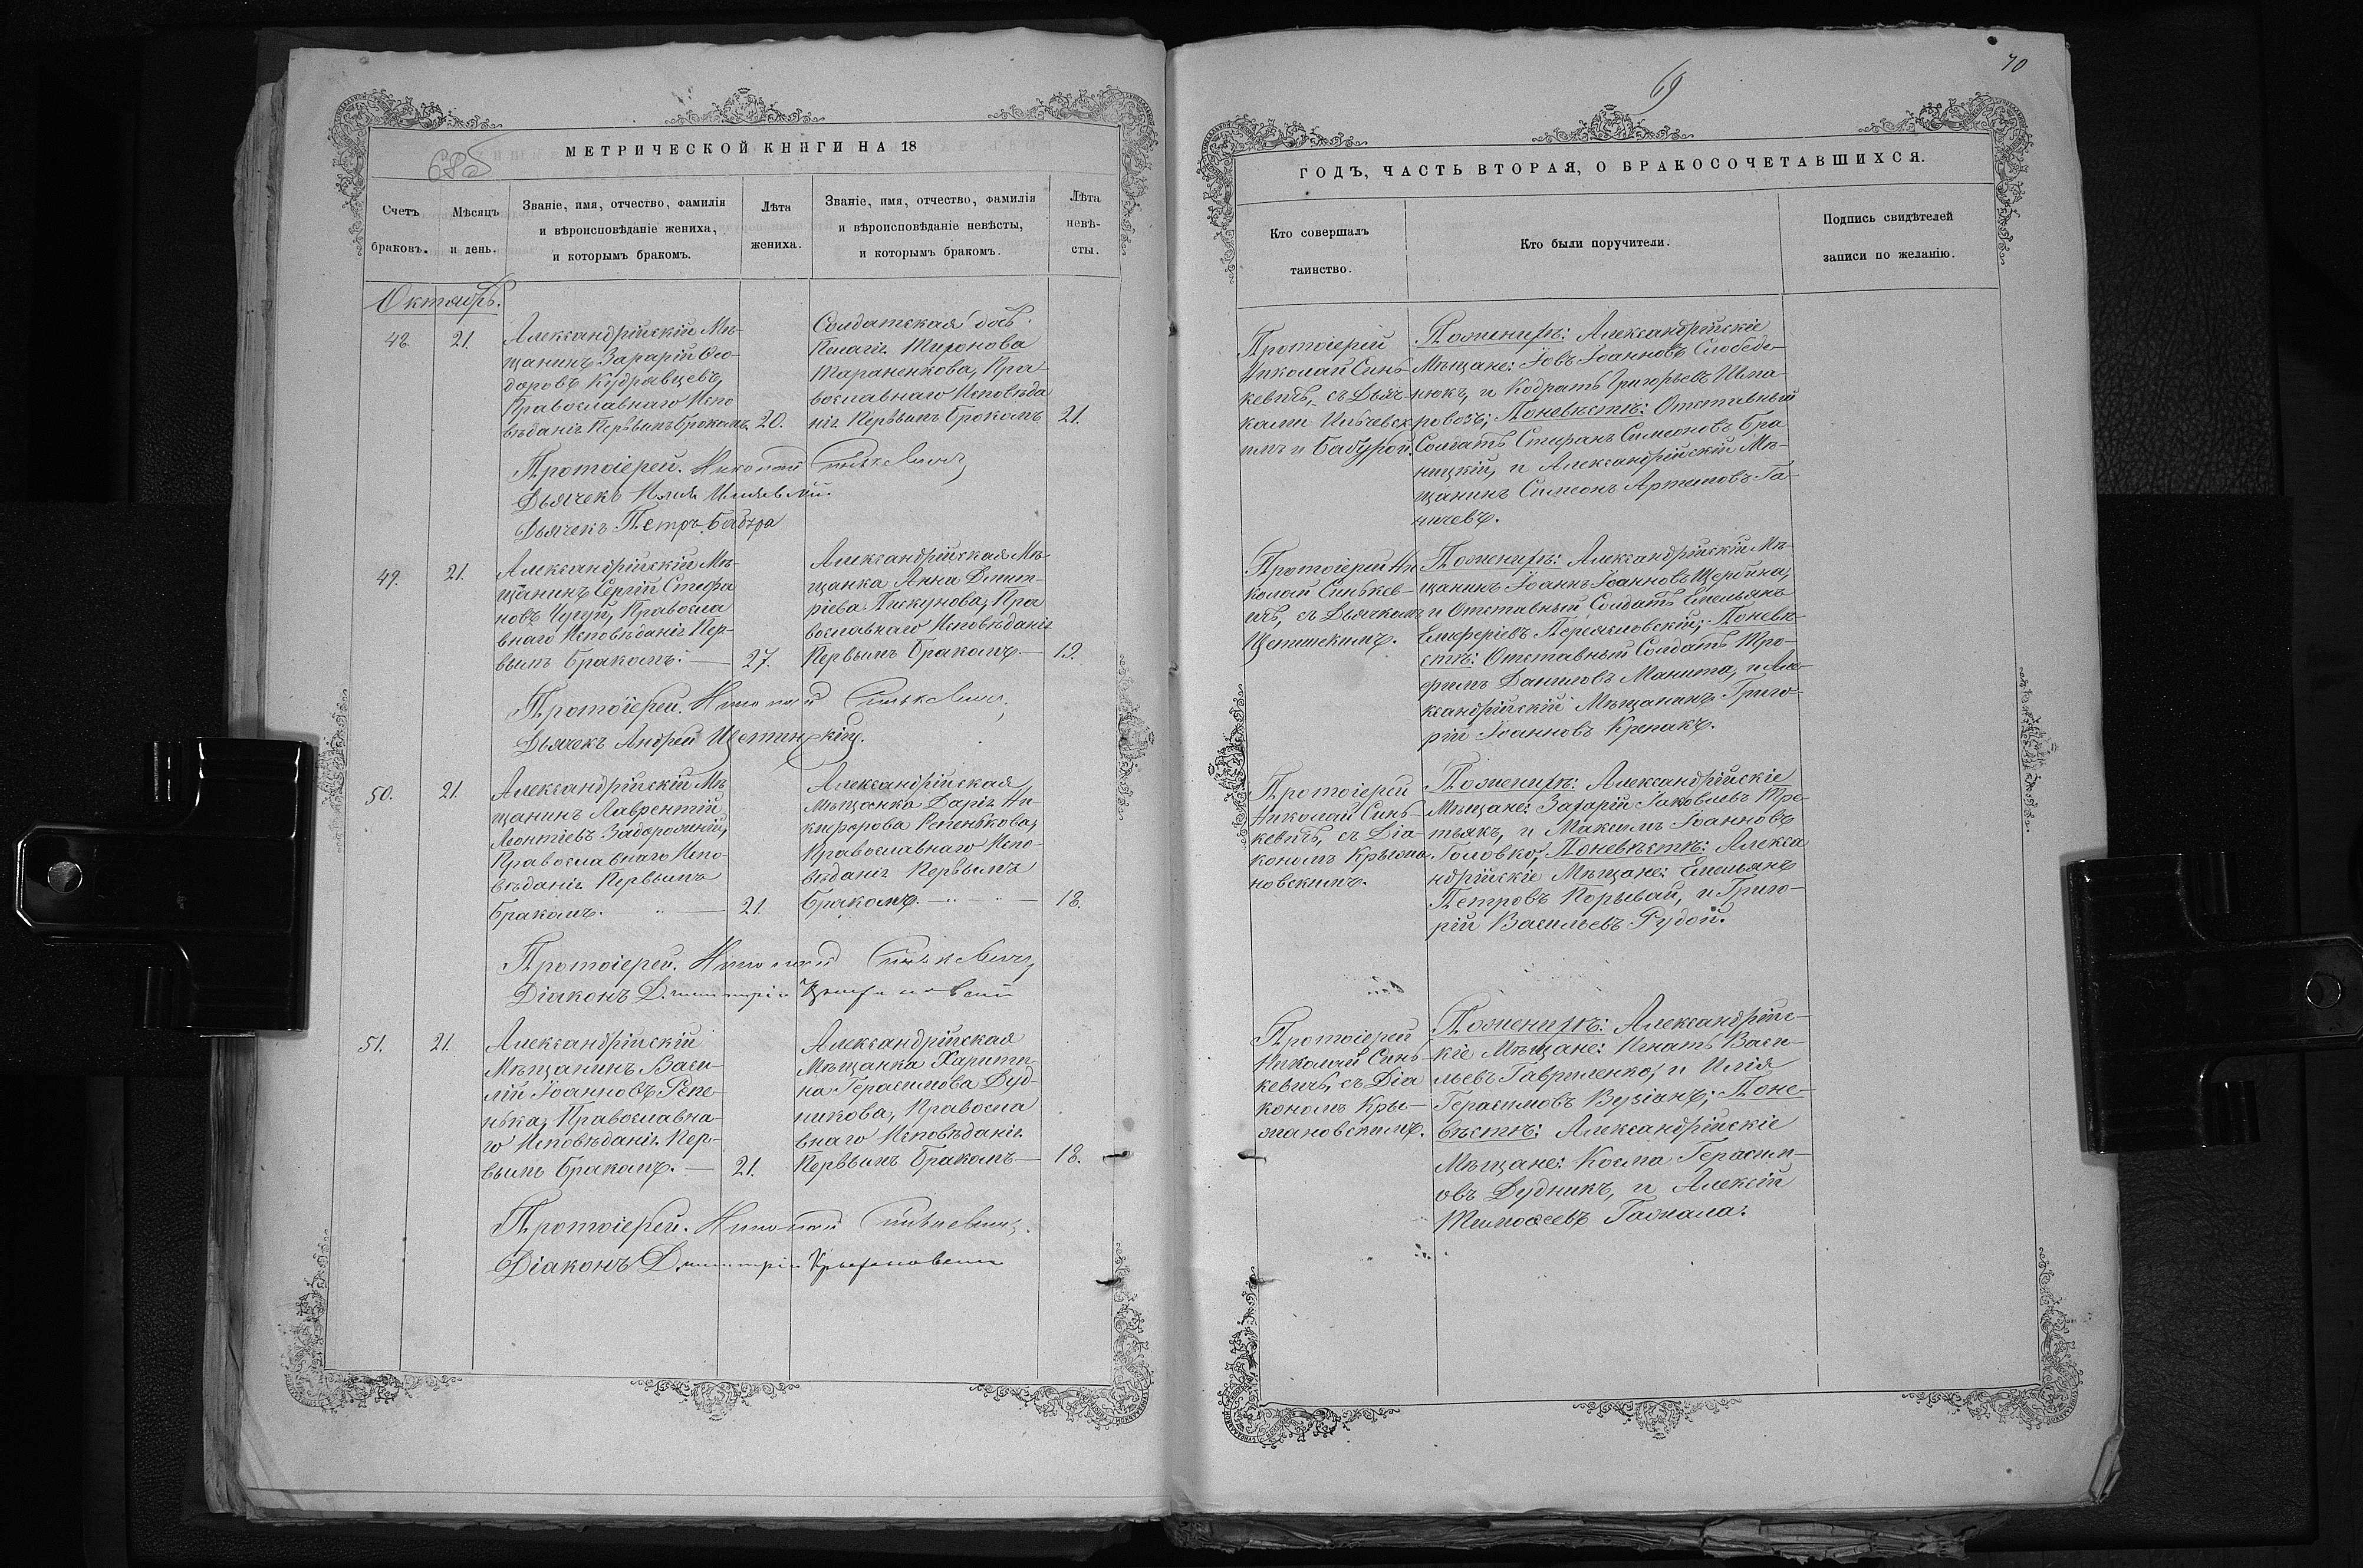 685
МЕТРИЧЕСКОЙ КНИГИ НА 18
Счетъ
браковъ.
Мѣсяцъ
и день.
Званіе, имя, отчество, фамилія
и вѣроисповѣданіе жениха,
и которымъ бракомъ.
Лѣта
жениха.
Званіе, имя, отчество, фамилія
и вѣроисповѣданіе невѣсты,
и которымъ бракомъ.
Лѣта
невѣ-
сты.
Октябрь.
48.
21.
Александрійскій Мѣ-
щанинъ Захарій Ѳео-
доровъ Кудрявцевъ,
Православнаго Испо
вѣданія Первымъ бракомъ.
20.
Солдатская дочь
Пелагія Миронова
Тараненкова, Пра-
вославнаго Исповѣда
нія Первымъ бракомъ
21.
Протоіерей. Николай Синькевичъ
Дьячекъ Илія Ильчевскій.
Дьячекъ Петръ Бабура
49.
21.
Александрійскій Мѣ-
щанинъ Сергій Стефа
новъ Чугуй, Правосла
внаго Исповѣданія Пер-
вымъ бракомъ.
27.
Александрійская Мѣ
щанка Анна Димит-
ріева Пискунова, Пра
вославнаго Исповѣданія
Первымъ бракомъ.
19.
Протоіерей. Николай Синькевичъ
Дьячекъ Андрей Щетинскій.
50.
21.
Александрійскій Мѣ
щанинъ Лаврентій
Леонтіевъ Задорожній,
Православнаго Испо-
вѣданія Первымъ
бракомъ.
21.
Александрійская
Мѣщанка Дарія Ни
кифорова Репенькова,
Православнаго Испо-
вѣданія Первымъ
бракомъ.
18.
Протоіерей. Николай Синькевичъ
Діаконъ Димитрій Крыжановскій
51.
21.
Александрійскій
Мѣщанинъ Васи-
лій Іоанновъ Репе-
нька, Православна-
го Исповѣданія Пер-
вымъ бракомъ.
21.
Александрійская
Мѣщанка Харити-
на Герасимова Дуд-
никова, Правосла
внаго Исповѣданія
Первымъ бракомъ
18.
Протоіерей. Николай Синькевичъ.
Діаконъ Димитрій Крыжановскій
69
70
ГОДЪ, ЧАСТЬ ВТОРАЯ, О БРАКОСОЧЕТАВШИХСЯ.
Кто совершалъ
таинство.
Кто были поручители.
Подпись свидѣтелей
записи по желанію.
Протоіерей
Николай Синь
кевичъ, съ Дьяч-
ками Ильчевск
имъ и Бабурой.
По женихѣ: Александрійскіе
Мѣщане: Іовъ Іоанновъ Слободе-
нюкъ, и Кодратъ Григорьевъ Шпа-
ровозъ; По невѣстѣ: Отставный
Солдатъ Стефанъ Симеоновъ Бра
ницкій, и Александрійскій Мѣ-
щанинъ Симеонъ Артемовъ Га-
ничевъ.
Протоіерей Ни
колай Синькев-
ичъ, съ Дьячкомъ
Щетинскимъ.
По женихѣ: Александрійскій Мѣ-
щанинъ Іоаннъ Іоанновъ Щербина,
и Отставный Солдатъ Емельянъ
Елиферіевъ Переясловскій; По невѣ-
стѣ: Отставный Солдатъ Тро-
фимъ Даниловъ Манита, и Але-
ксандрійскій Мѣщанинъ Григо-
рій Іоанновъ Крепакъ.
Протоіерей
Николай Синь-
кевичъ, съ Діа-
кономъ Крыжа
новскимъ.
По женихѣ: Александрійскіе
Мѣщане: Захарій Іаковлевъ Тре-
тьякъ, и Максимъ Іоанновъ
Головко; По невѣстѣ: Алекса
ндрійскіе Мѣщане: Емельянъ
Петровъ Порывай, и Григо-
рій Васильевъ Рудой.
Протоіерей
Николай Синь-
кевичъ, съ Діа
кономъ Кры-
жановскимъ.
По женихѣ: Александрійс-
кіе Мѣщане: Игнатъ Васи-
льевъ Гавриленко, и Илія
Герасимовъ Вузіанъ; По не-
вѣстѣ: Александрійскіе
Мѣщане: Косма Герасим-
овъ Дудникъ, и Алексій
Тимоѳеевъ